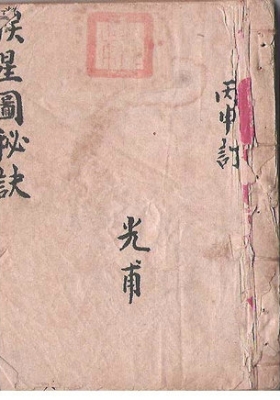 丙申訂
光甫
星圖秘訣